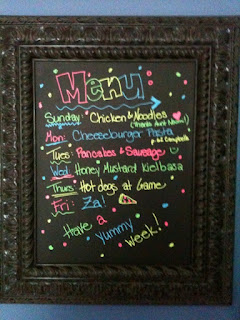 Menu
Sunday: Chicken & Noodles
(thanks Aunt Naomi!)
Mon: Cheeseburger Pasta
Tues: Pancakes & Sausage
Wed: Honey Mustard Kielbasa
Thurs: Hot dogs at Game
Fri: Za!
Have a
yummy
week!